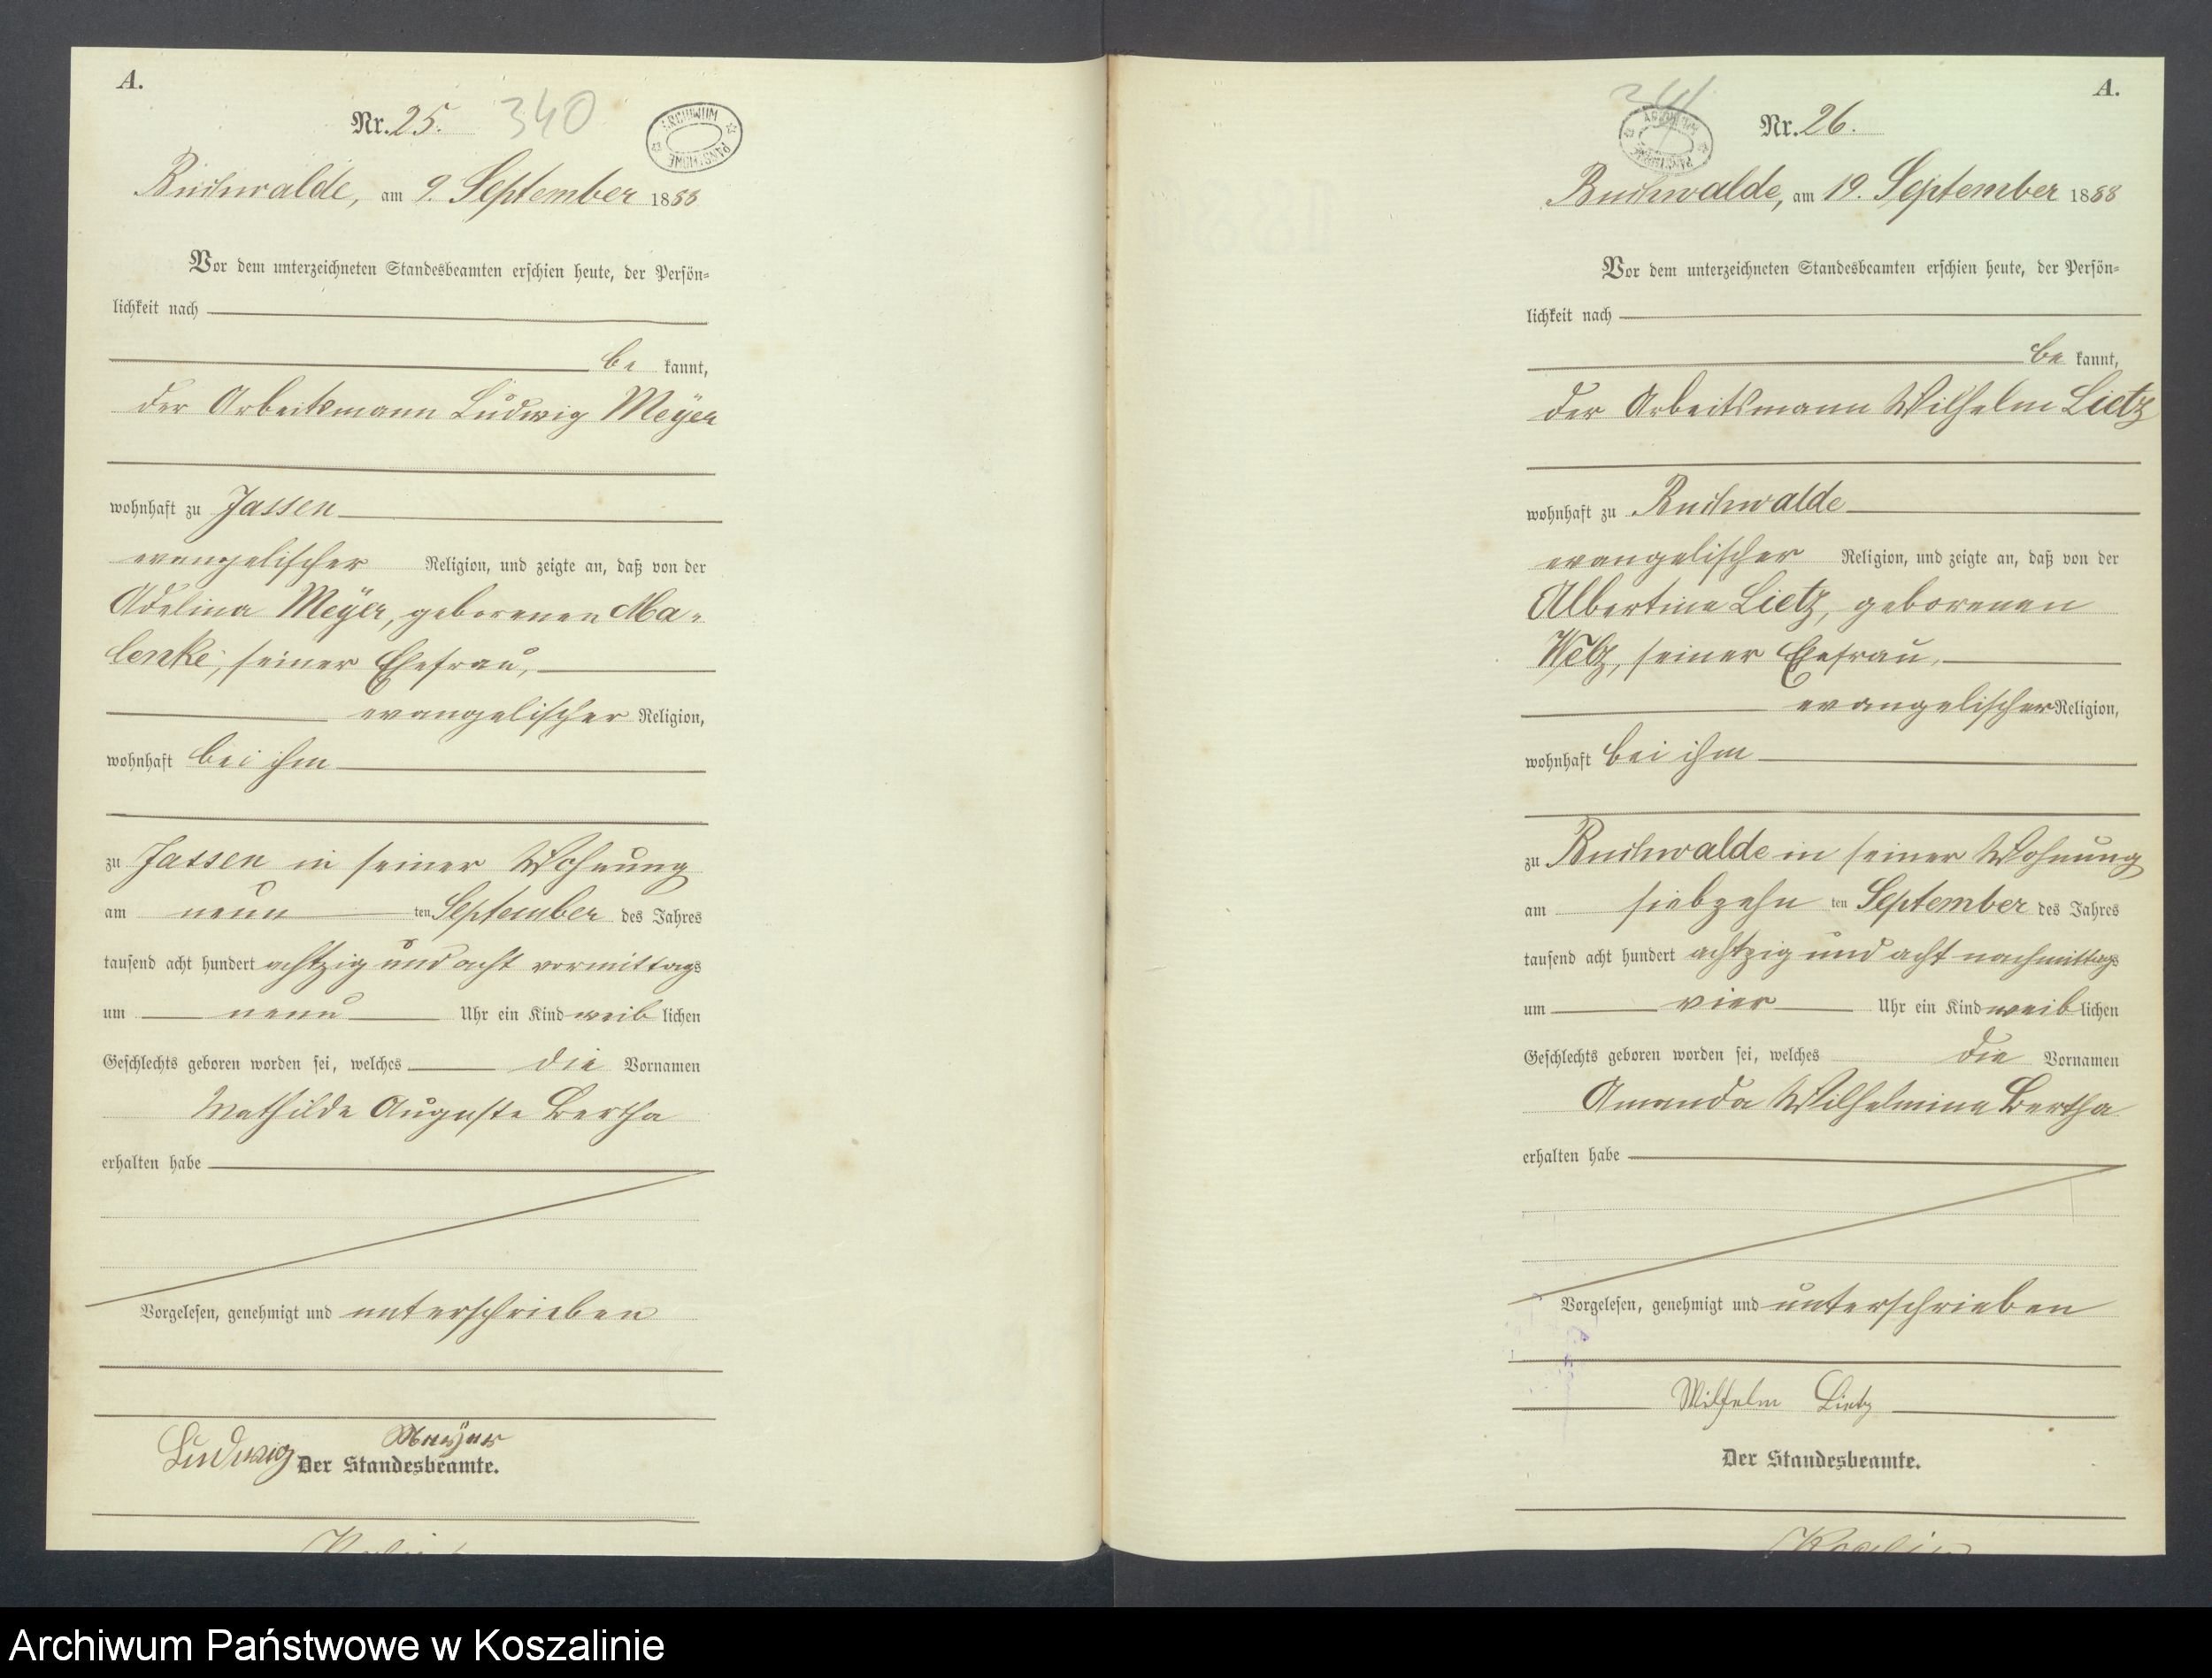 A.
Nr. 25.
340
ARCHIWUM PAŃSTWOWE
Buchwalde, am 9. September 1888
Vor dem unterzeichneten Standesbeamten erschien heute, der Persön=
lichkeit nach
be kannt,
der Arbeitsmann Ludwig Meÿer
wohnhaft zu Jassen
evangelischer Religion, und zeigte an, daß von der
Adelina Meÿer, geborenen Ma-
lenke, seiner Ehefrau,
evangelischer Religion,
wohnhaft bei ihm
zu Jassen in seiner Wohnung
am neun ten September des Jahres
tausend acht hundert achtzig und acht vormittags
um neun Uhr ein Kind weib lichen
Geschlechts geboren worden sei, welches die Vornamen
Mathilde Auguste Bertha
erhalten habe
Vorgelesen, genehmigt und unterschrieben
Ludwig Meÿer
Der Standesbeamte.
A.
341
ARCHIWUM PAŃSTWOWE
Nr. 26.
Buchwalde, am 19. September 1888
Vor dem unterzeichneten Standesbeamten erschien heute, der Persön=
lichkeit nach
be kannt,
der Arbeitsmann Wilhelm Lietz
wohnhaft zu Buchwalde
evangelischer Religion, und zeigte an, daß von der
Albertine Lietz, geborenen
Welz, seiner Ehefrau,
evangelischer Religion,
wohnhaft bei ihm
zu Buchwalde in seiner Wohnung
am siebzehn ten September des Jahres
tausend acht hundert achtzig und acht nachmittags
um vier Uhr ein Kind weib lichen
Geschlechts geboren worden sei, welches die Vornamen
Amanda Wilhelmine Bertha
erhalten habe
Vorgelesen, genehmigt und unterschrieben
Wilhelm Lietz
Der Standesbeamte.
Archiwum Państwowe w Koszalinie